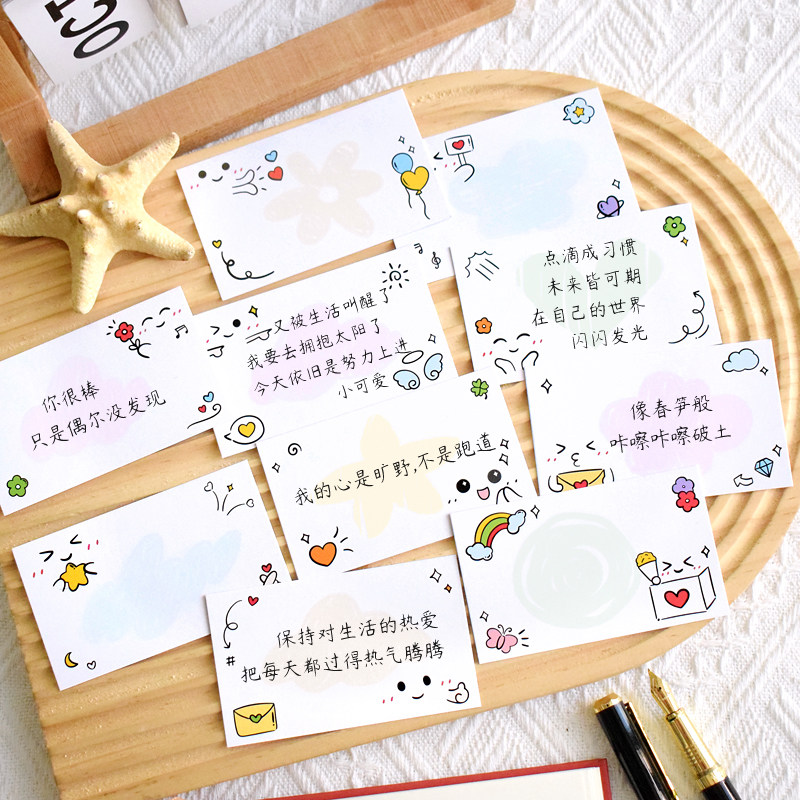 点滴成习惯
未来皆可期
在自己的世界
闪闪发光
又被生活叫醒了
我要去拥抱太阳了
今天依旧是努力上进
小可爱
你很棒
只是偶尔没发现
像春笋般
咔嚓咔嚓破土
我的心是旷野,不是跑道
保持对生活的热爱
把每天都过得热气腾腾
#